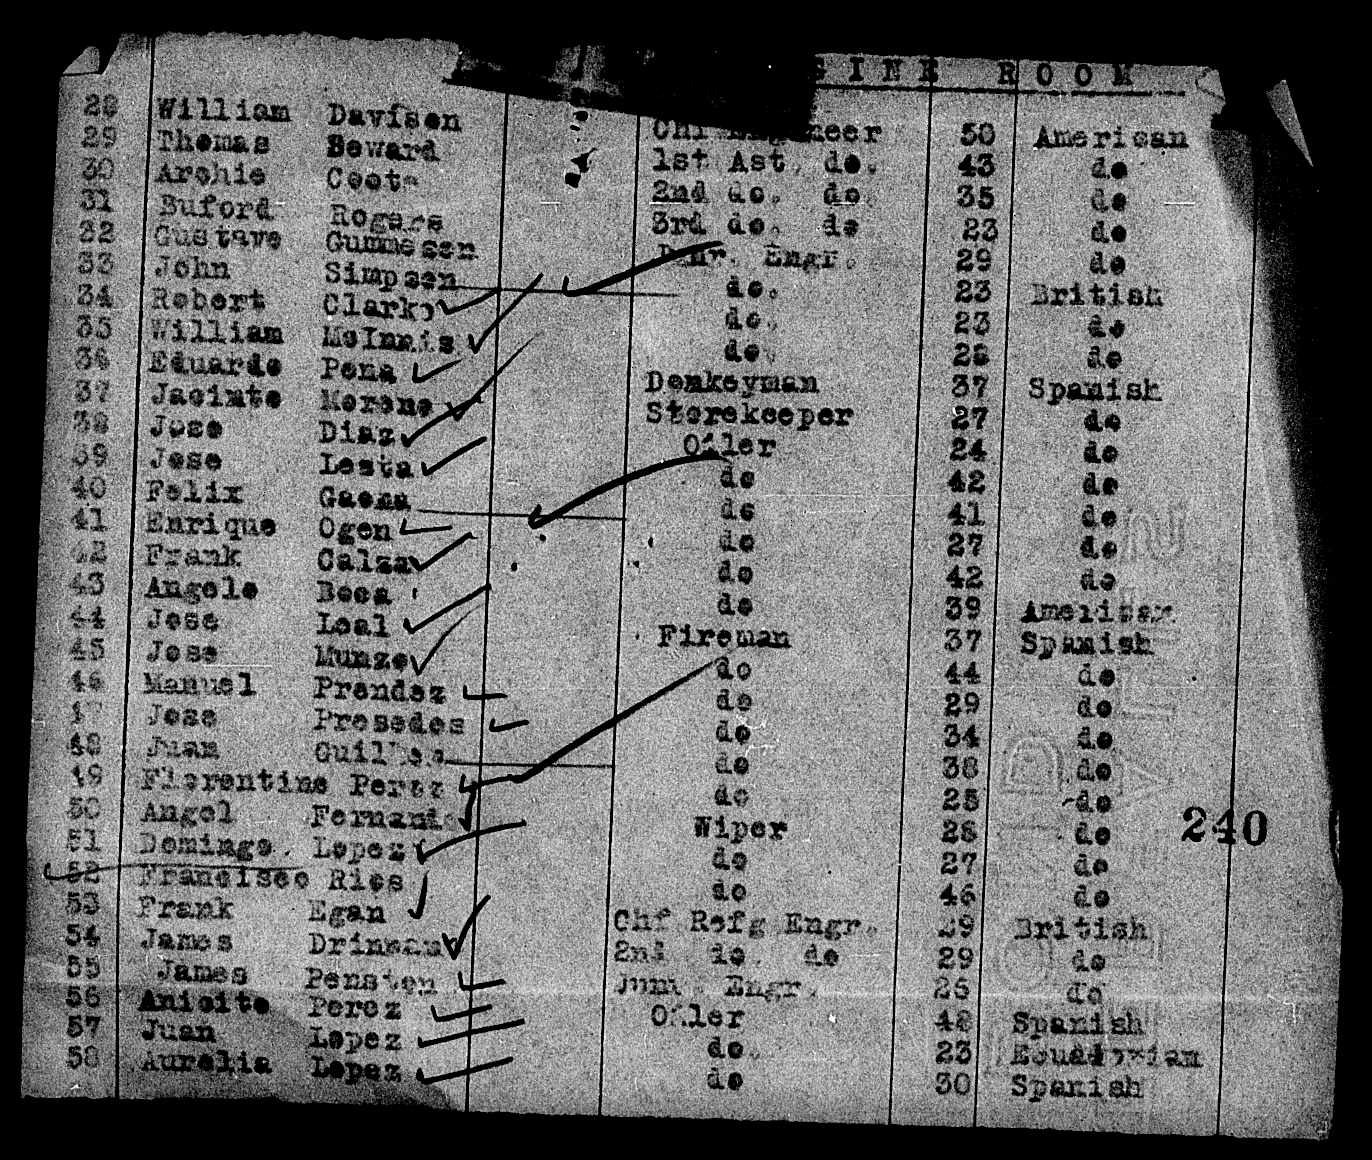 GINE ROOM
28 William Davisen Chf Engineer 50 American
29 Thomas Seward 1st Ast. do. 43 do
30 Archie Coote 2nd do. do 35 do
31 Buford Rogers 3rd do. do 23 do
32 Gustave Gummesen Engr. 29 do
33 John Simpsen do. 23 British
34 Robert Clarke do. 23 do
35 William McInnis do. 28 do
36 Eduardo Pena Donkeyman 37 Spanish
37 Jacinto Moreno Storekeeper 27 do
38 Jose Diaz Oiler 24 do
39 Jose Lesta do 42 do
40 Felix Gaena do 41 do
41 Enrique Ogen do 27 do
42 Frank Calza do 42 do
43 Angelo Boca do 39 American
44 Jose Leal Fireman 37 Spanish
45 Jose Munzo do 44 do
46 Manuel Prendez do 29 do
47 Jose Presedes do 34 do
48 Juan do 38 do
49 Florentine Perez do 25 do
50 Angel Wiper 28 do
240
51 Domingo. Lopez do 27 do
52 Francisco Rios do 46 do
53 Frank Egan Chf Refg Engr. 29 British
54 James 2nd do. do 29 do
55 James Pensten Junr. Engr. 26 do
56 Anicito Perez Oiler 48 Spanish
57 Juan Lopez do. 23 Ecuadorian
58 Aurelia Lopez do 30 Spanish